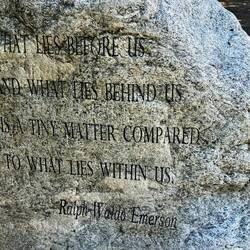 HAT LIES BEFORE US
AND WHAT LIES BEHIND US
IS A TINY MATTER COMPARED
TO WHAT LIES WITHIN US.
Ralph Waldo Emerson